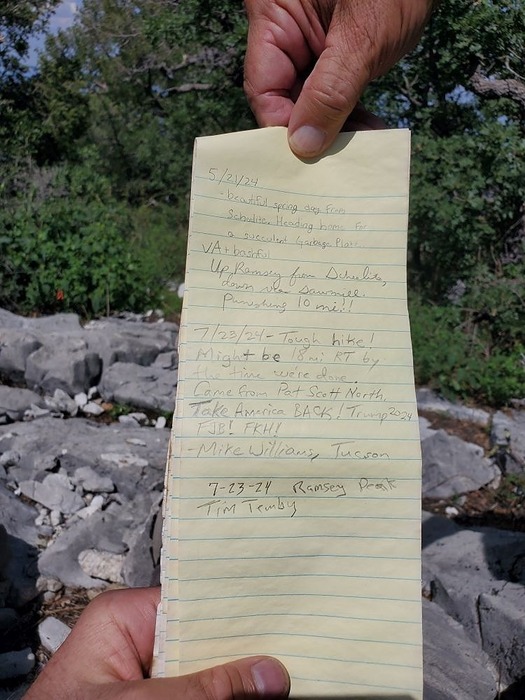 5/21/24
- beautiful spring day from
Heading home for
a succulent Garbage Plate
VA + bashful
Up Ramsey from
down via Sawmill.
Punishing 10 mi!!
7/23/24 - Tough hike!
Might be 18 mi RT by
the time we're done.
Came from Pat Scott North.
Take America BACK! Trump 2024
FJB! FKH!
- Mike Williams, Tucson
7-23-24 Ramsey Peak
Tim